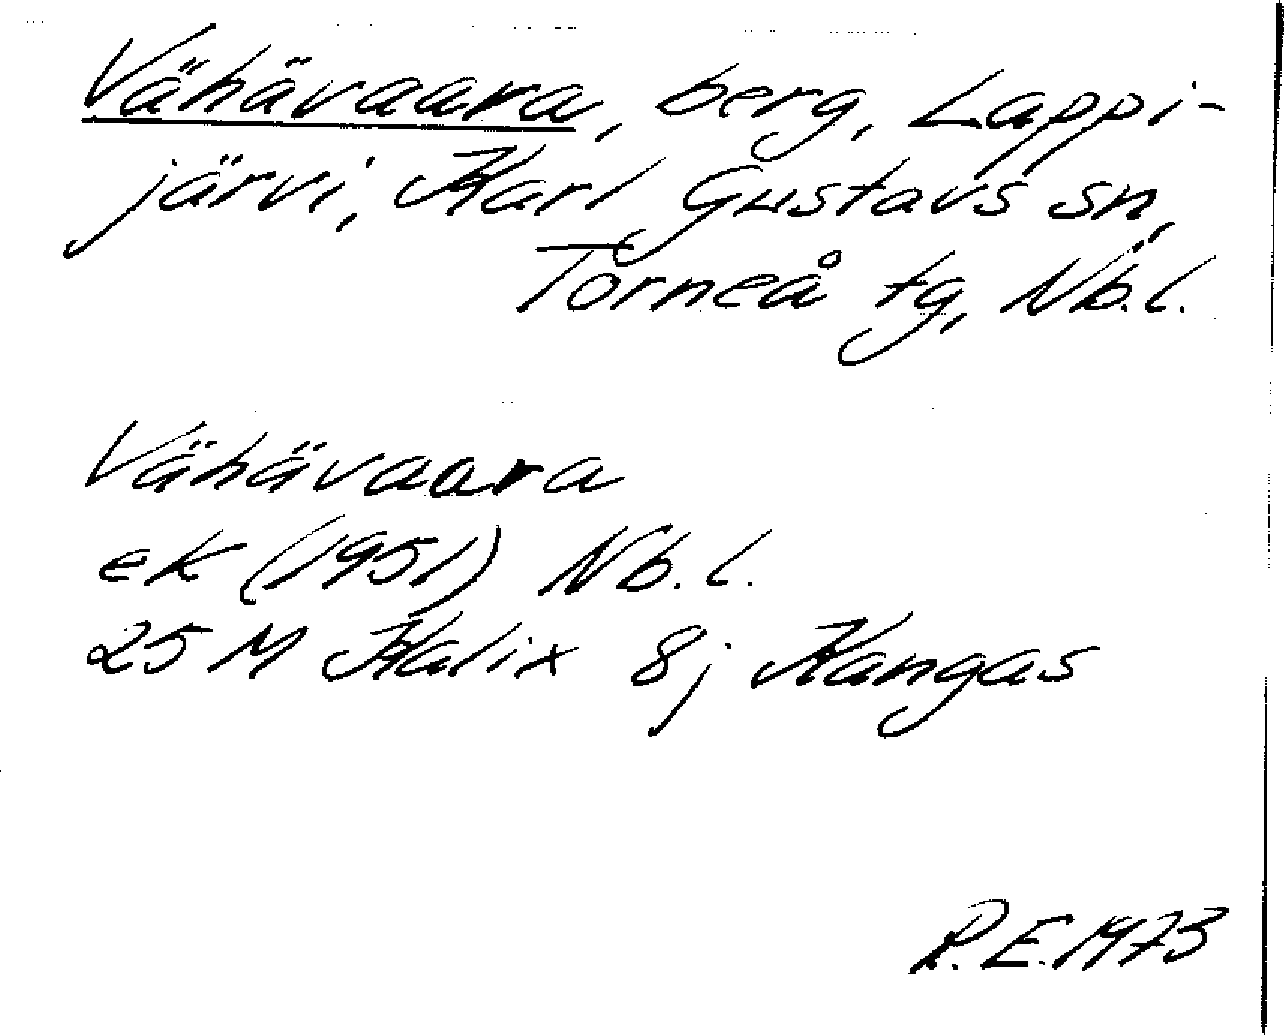 Vähävaara, berg, Lappi-
järvi, Karl Gustavs sn,
Torneå tg, Nb.l.
Vähävaara
ek (1951) Nb.l.
25 M Kalix 8j Kangas
R.E.1973